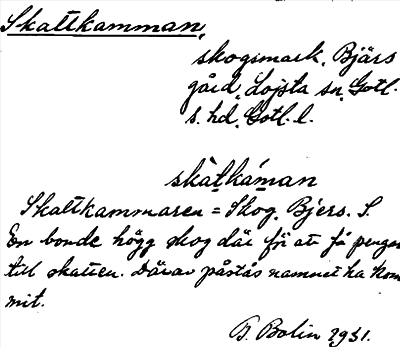 Skattkamman,
skogsmark, Bjärs
gård, Lojsta sn, Gotl.
s. hd, Gotl. l.
skàtkáman
Skattkammaren = Skog. Bjers. S.
En bonde högg skog där för att få pengar
till skatten. Därav påstås namnet ha kom
mit.
G. Bolin 1931.